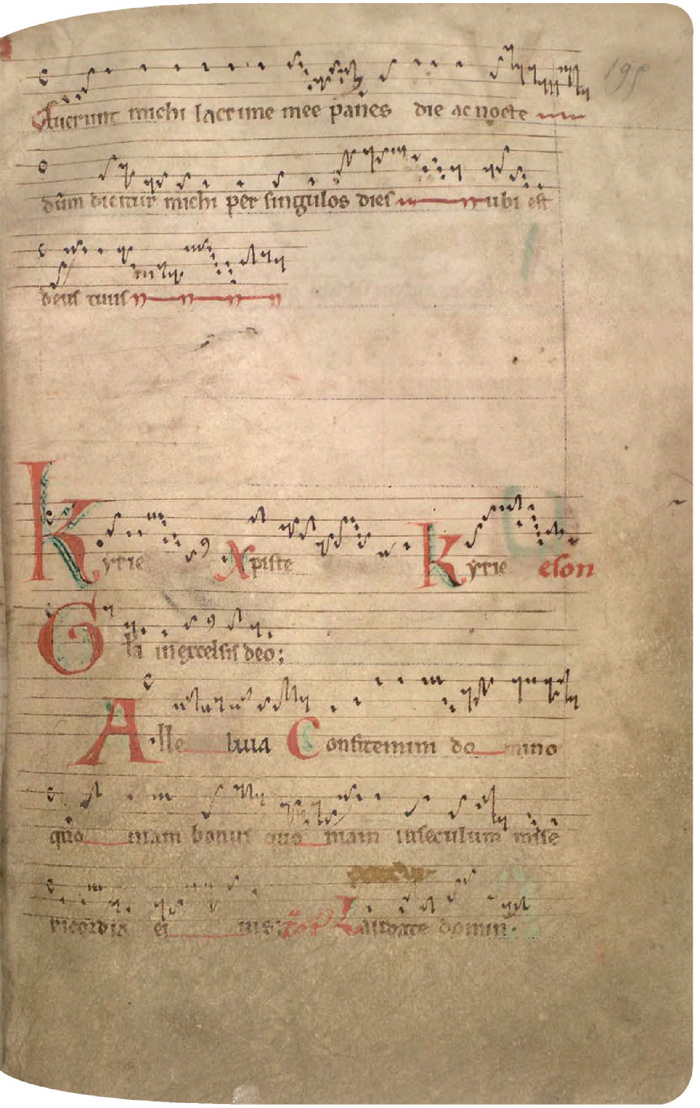 195
Fuerunt michi lacrime mee panes die ac nocte
dum dicitur michi per singulos dies ubi est
deus tuus
Kyrie Xpiste Kyrie eleson
Gla in excelsis deo;
Alle luia Confitemini do mino
quo niam bonus quo niam in seculum mise
ricordia ei ius; Laudate domin